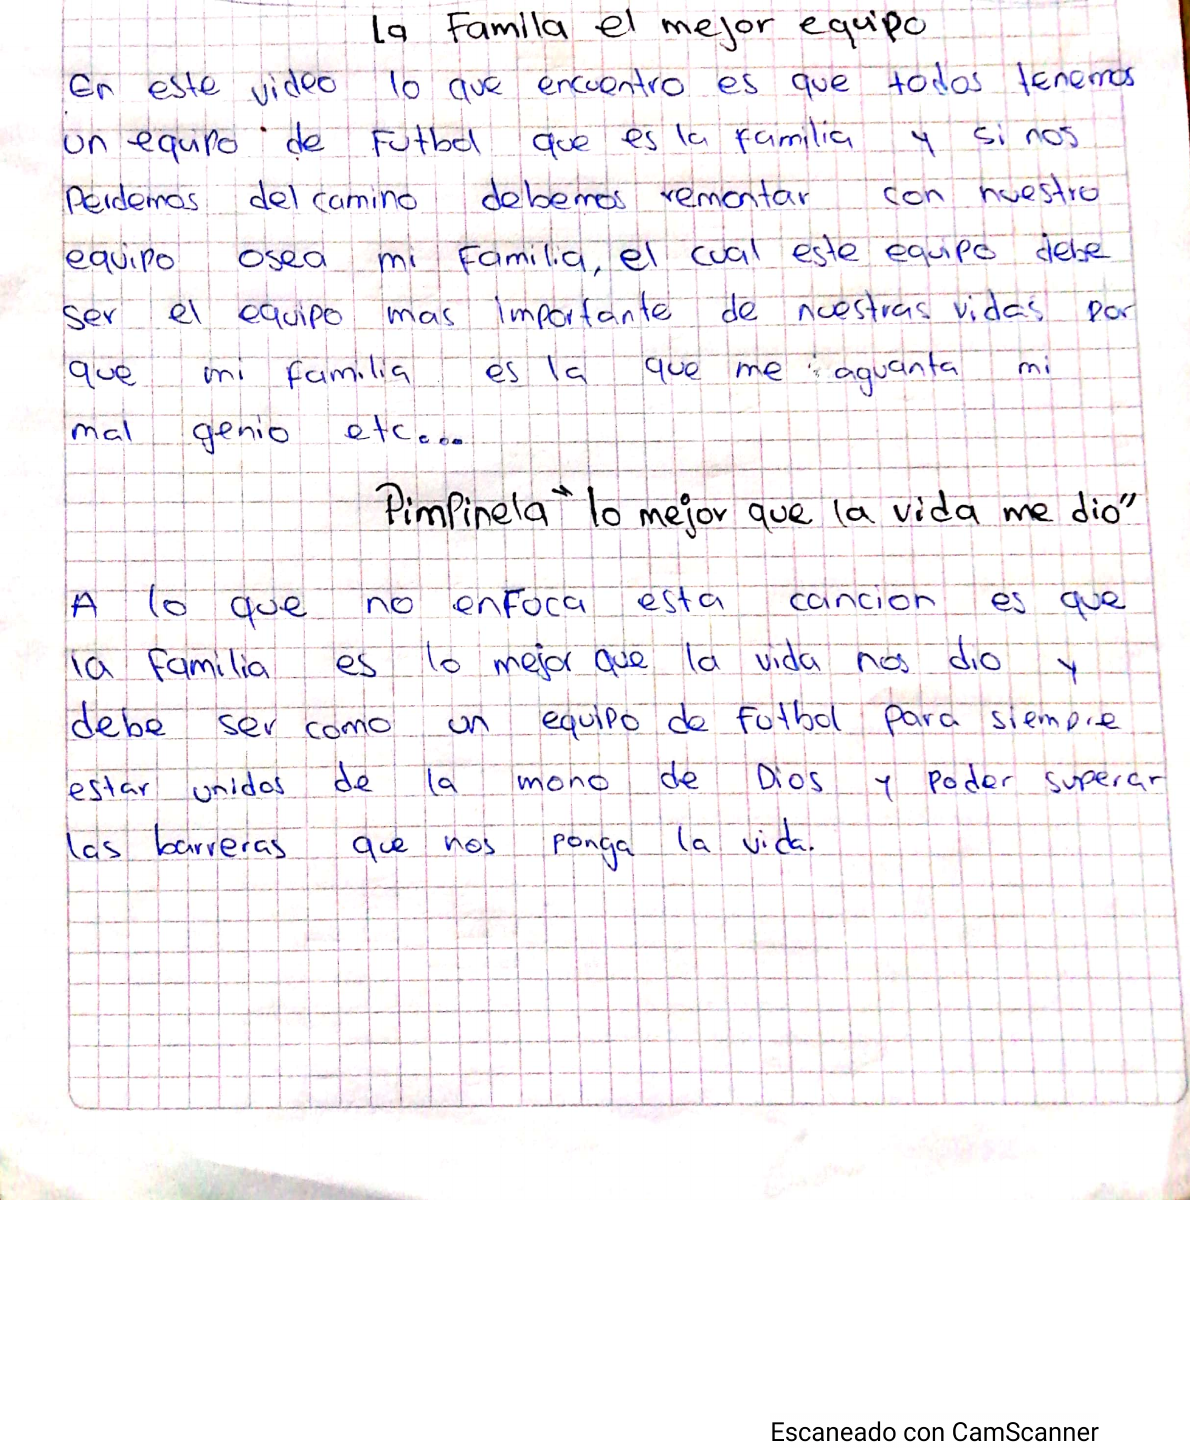 la Famila el mejor equipo
En este video lo que encuentro es que todos tenemos
un equipo de Futbol que es la familia y si nos
Perdemos del camino debemos remontar con nuestro
equipo osea mi Familia, el cual este equipo debe
ser el equipo mas importante de nuestras vidas por
que mi familia es la que me aguanta mi
mal genio etc....
Pimpinela "lo mejor que la vida me dio"
A lo que no enfoca esta cancion es que
la familia es lo mejor que la vida nos dio y
debe ser como un equipo de Futbol para siempre
estar unidos de la mono de Dios y poder superar
las barreras que nos ponga la vida.
Escaneado con CamScanner